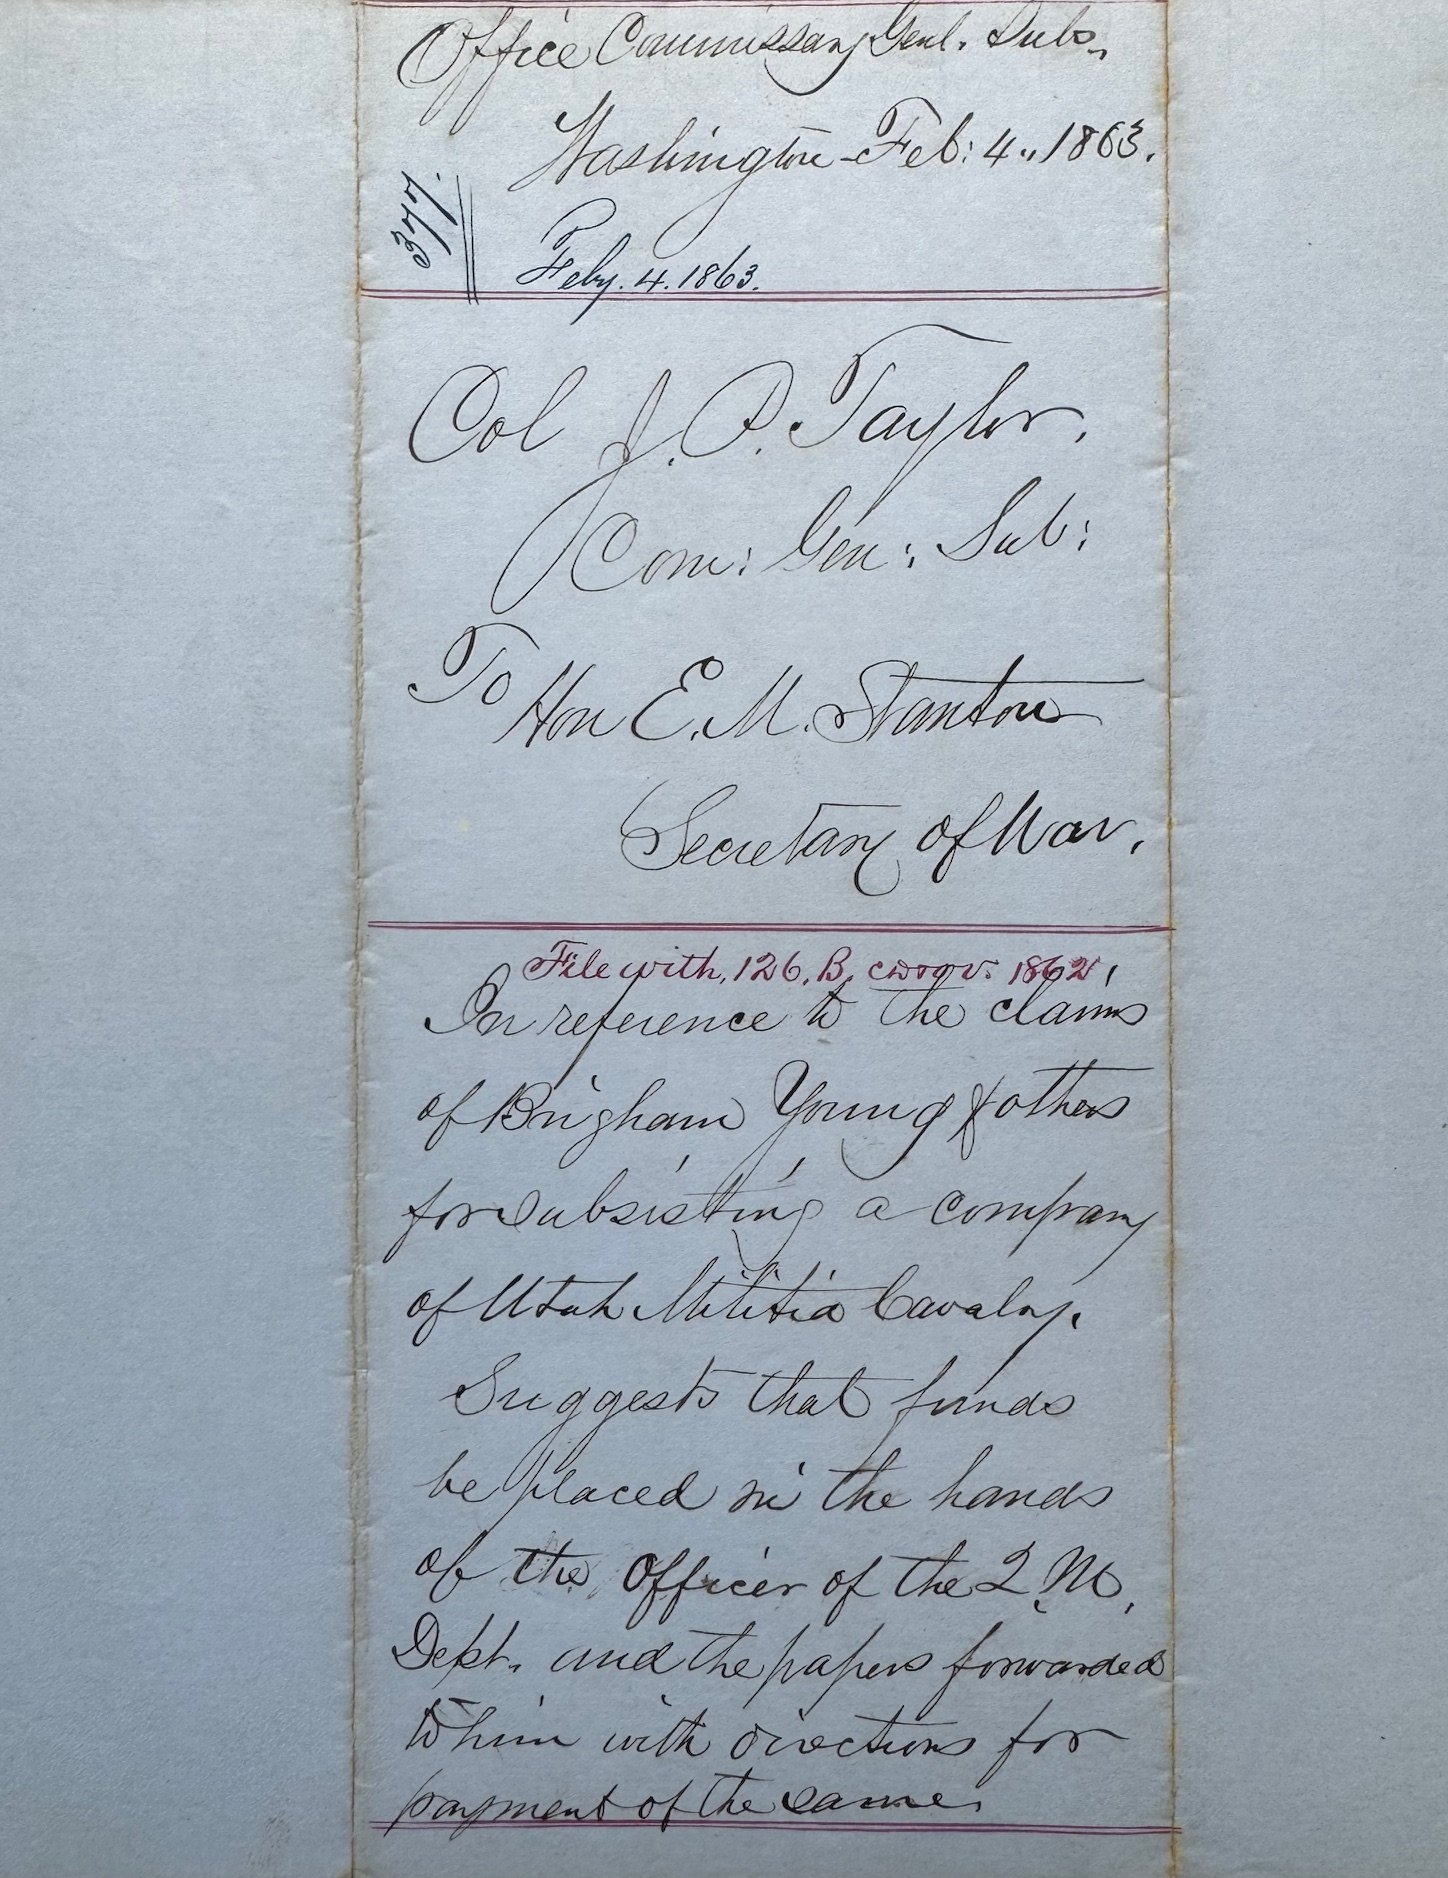 Office Commissary Genl. Subs.
Washington Feb: 4., 1863.
Feby. 4. 1863.
Col J. P. Taylor,
Com: Gen: Sub:
To Hon E. M. Stanton
Secretary of War.
File with, 126, B, 1862,
In reference to the claims
of Brigham Young & others
for subsisting a company
of Utah Militia Cavalry.
Suggests that funds
be placed in the hands
of the Officer of the Q. M.
Dept. and the papers forwarded
to him with directions for
payment of the same.